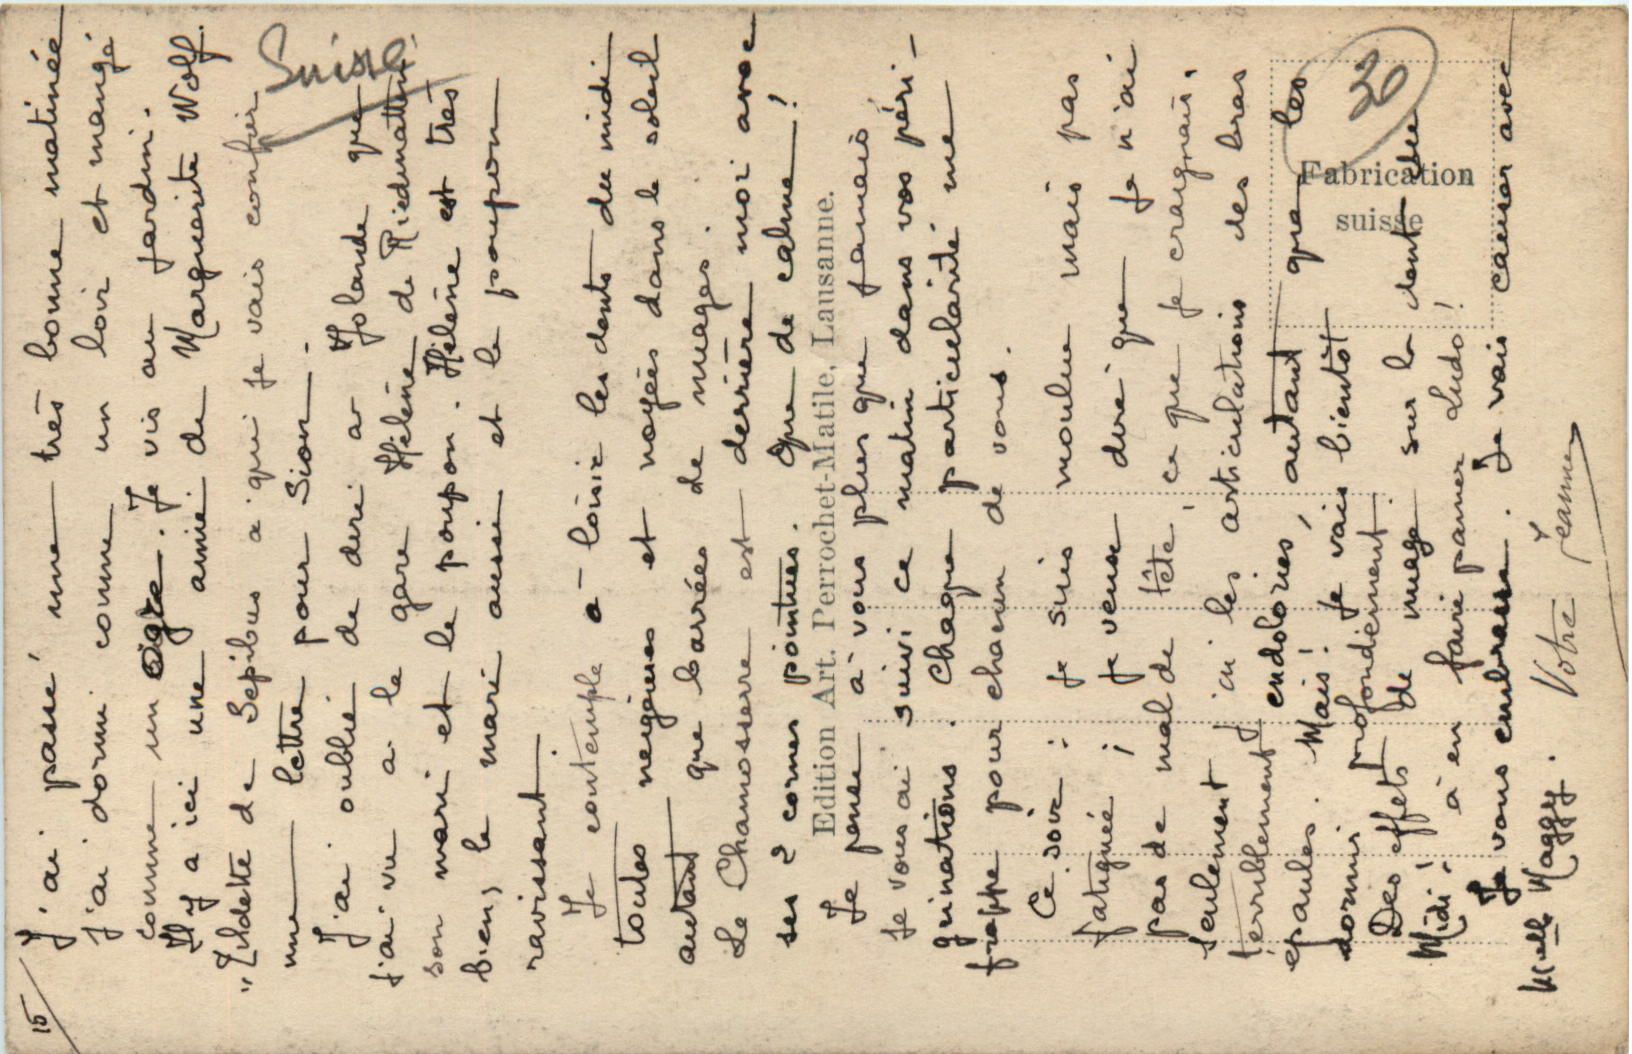 15
J'ai passé une très bonne matinée
j'ai dormi comme un loir et mangé
comme un ogre. Je vis au jardin.
Il y a ici une amie de Marguerite Wolf.
de Sepibus à qui je vais confier
une lettre pour Sion.
J'ai oublié de dire à Yolande que
j'ai vu à la gare Hélène de Riedmatten
son mari et le poupon. Hélène est très
bien, le mari aussi et le poupon
ravissant.
Je contemple à loisir les dents du midi
toutes neigeuses et noyées dans le soleil
autant que barrées de nuages.
Le Chamosserre est derrière moi avec
ses 2 cornes pointues. Que de calme!
Je pense à vous plus que jamais
Je vous ai suivi ce matin dans vos péri-
grinations. Chaque particularité me
frappe pour chacun de vous.
Ce soir: je suis moulue mais pas
fatiguée; je veux dire que je n'ai
pas de mal de tête, ce que je craignais,
seulement j'ai les articulations des bras
terriblement endolories, autant que les
épaules. Mais! je vais bientôt
dormir profondément.
Des effets de nuage sur la dent du
Midi! à en faire pâmer Ludo!
Je vous embrasse. Je vais causer avec
Melle Maggy. Votre Jeanne
Suisse
30
Fabrication
suisse
Edition Art. Perrochet-Matile, Lausanne.